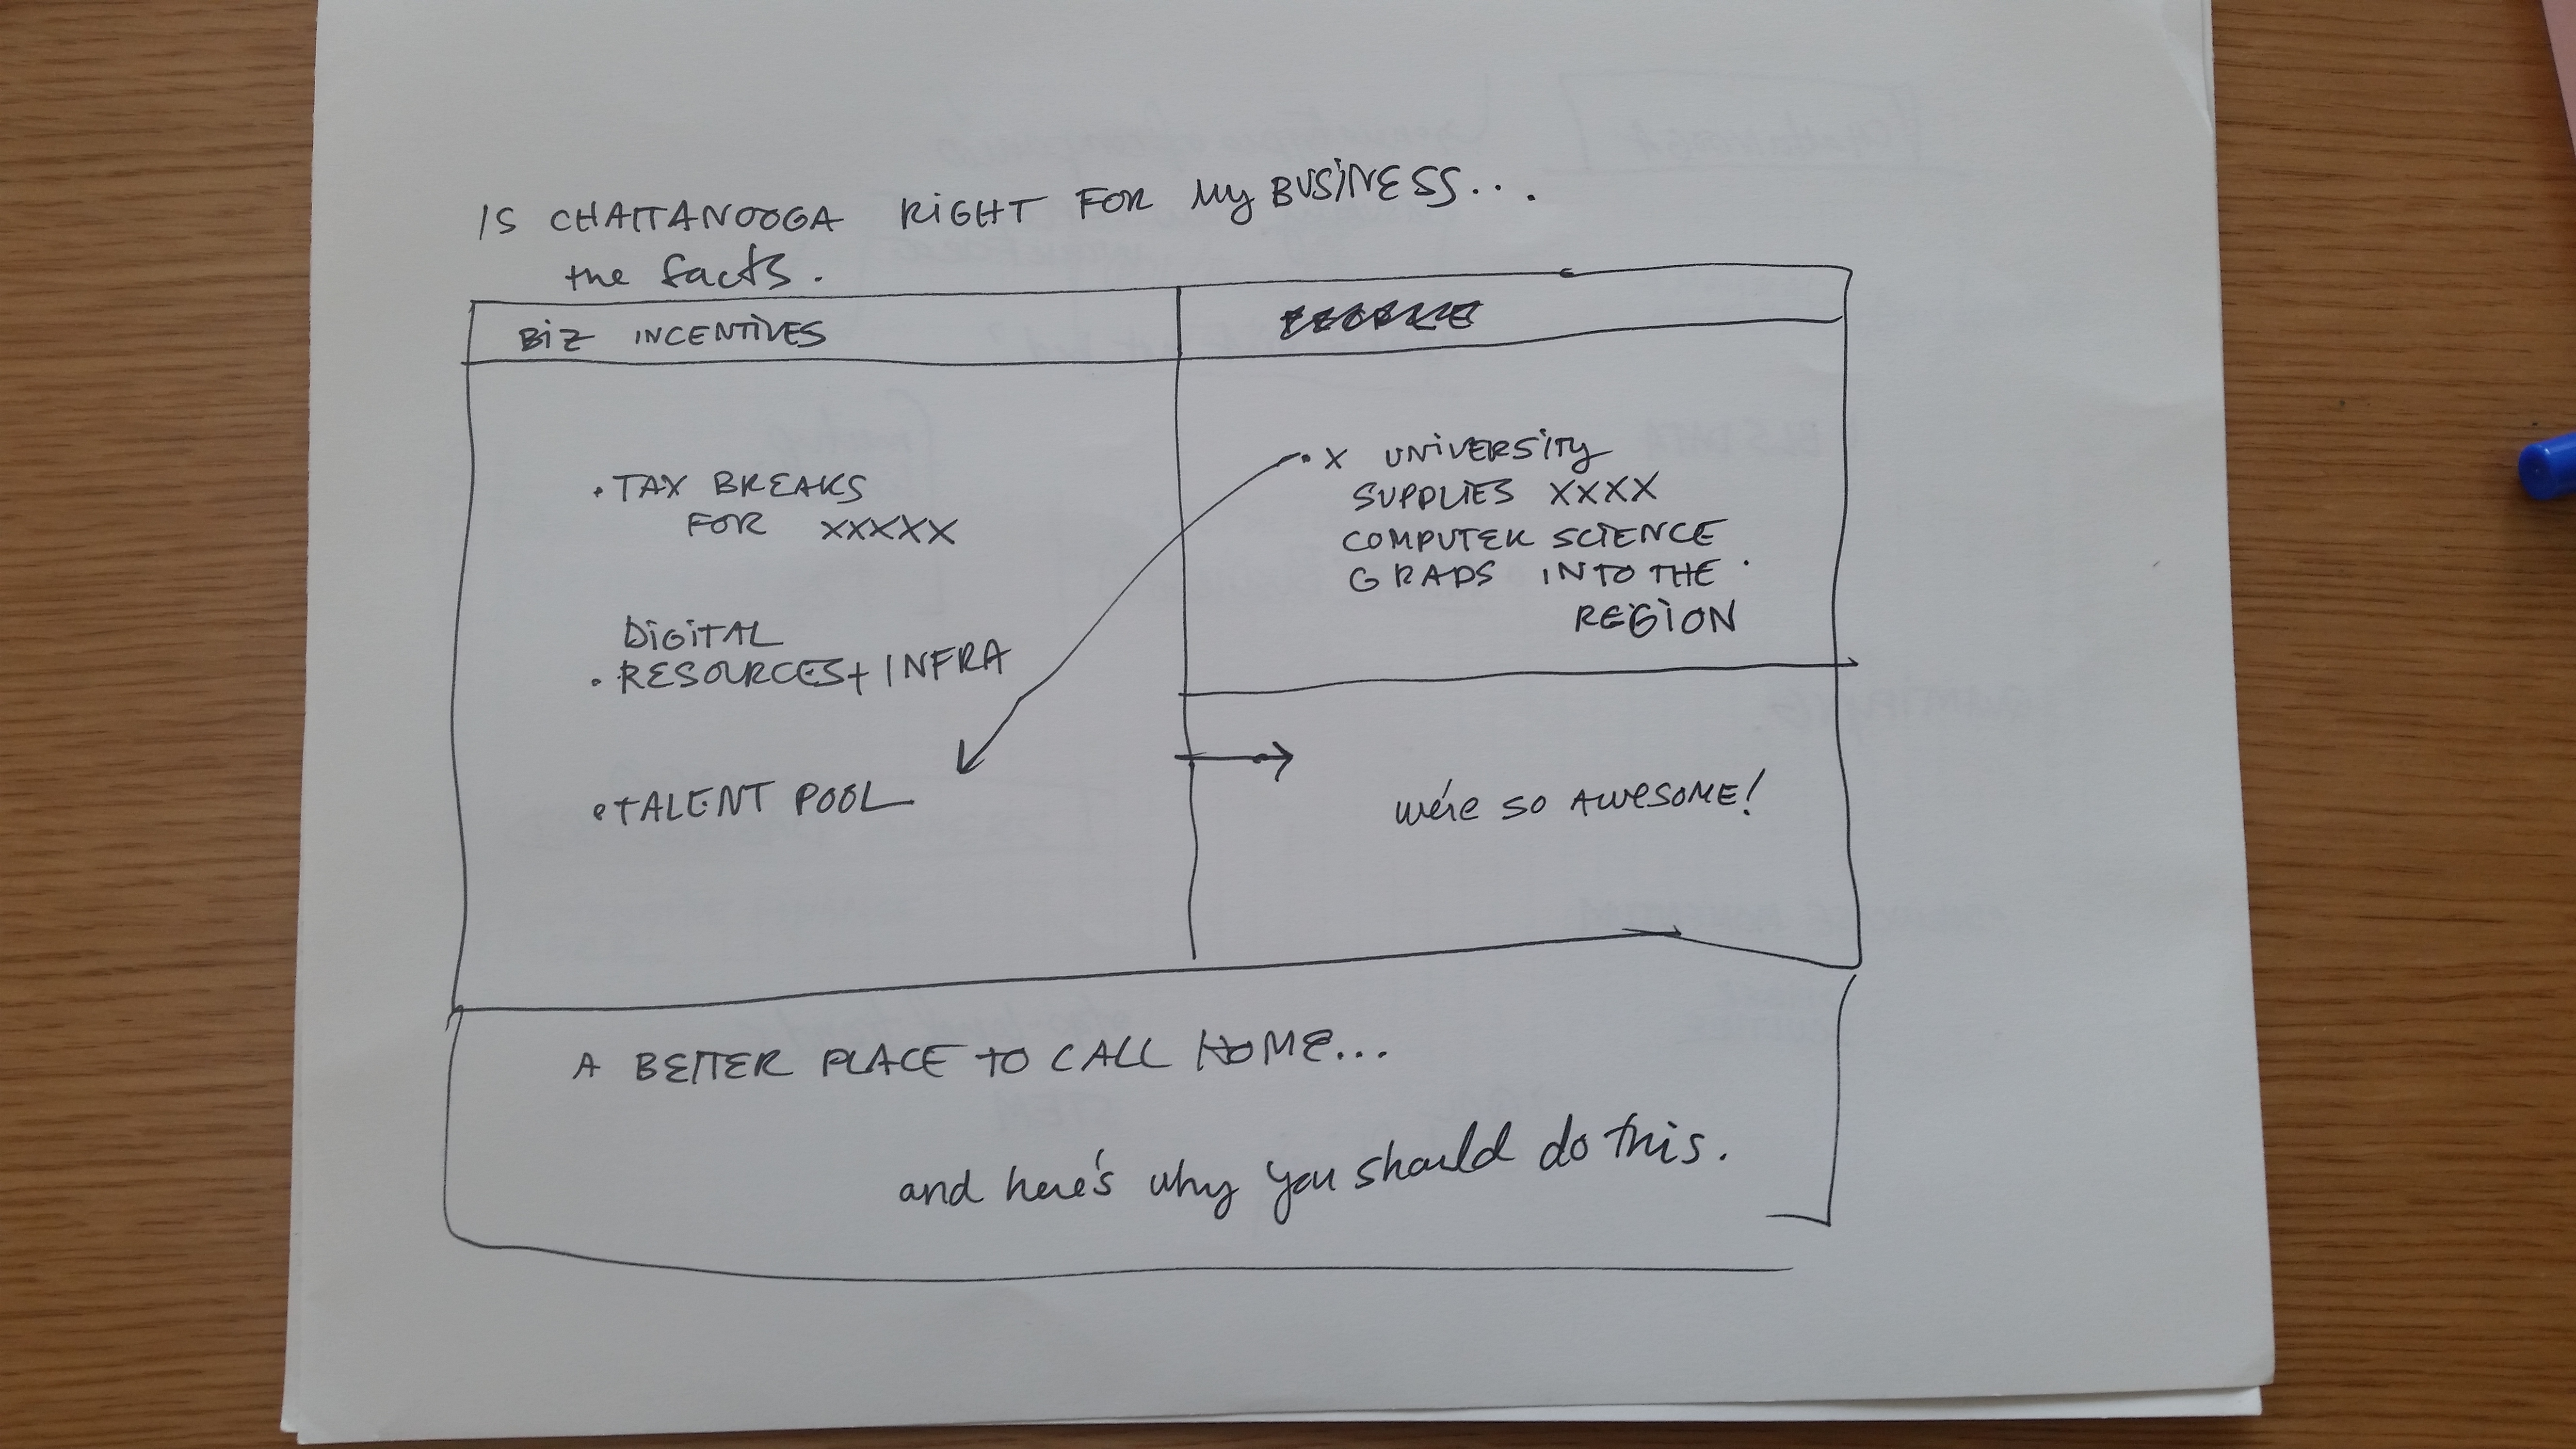 IS CHATTANOOGA RIGHT FOR MY BUSINESS...
the facts.
BIZ INCENTIVES
• TAX BREAKS
FOR XXXXX
DIGITAL
• RESOURCES + INFRA
• TALENT POOL
• X UNIVERSITY
SUPPLIES XXXX
COMPUTER SCIENCE
GRADS INTO THE
REGION
We're SO AWESOME!
A BETTER PLACE TO CALL HOME...
and here's why you should do this.